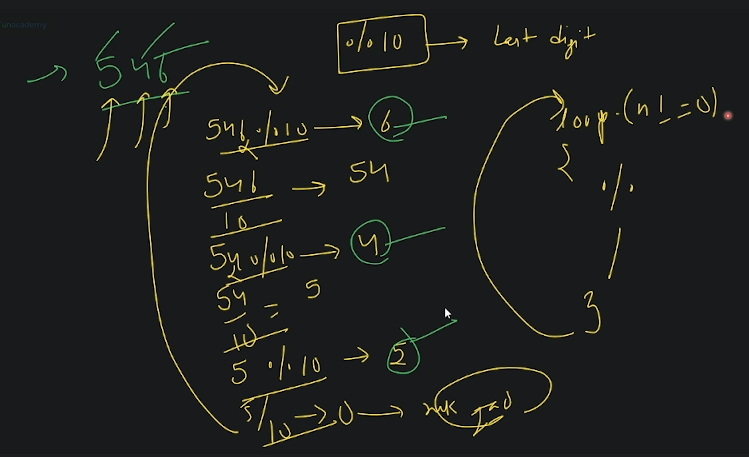 unacademy
→ 546
%10 → Last digit
546 % 10 → 6
546 / 10 → 54
54 % 10 → 4
54 / 10 = 5
5 % 10 → 5
5/10 → 0 →
loop (n != 0)
{
%
/
}